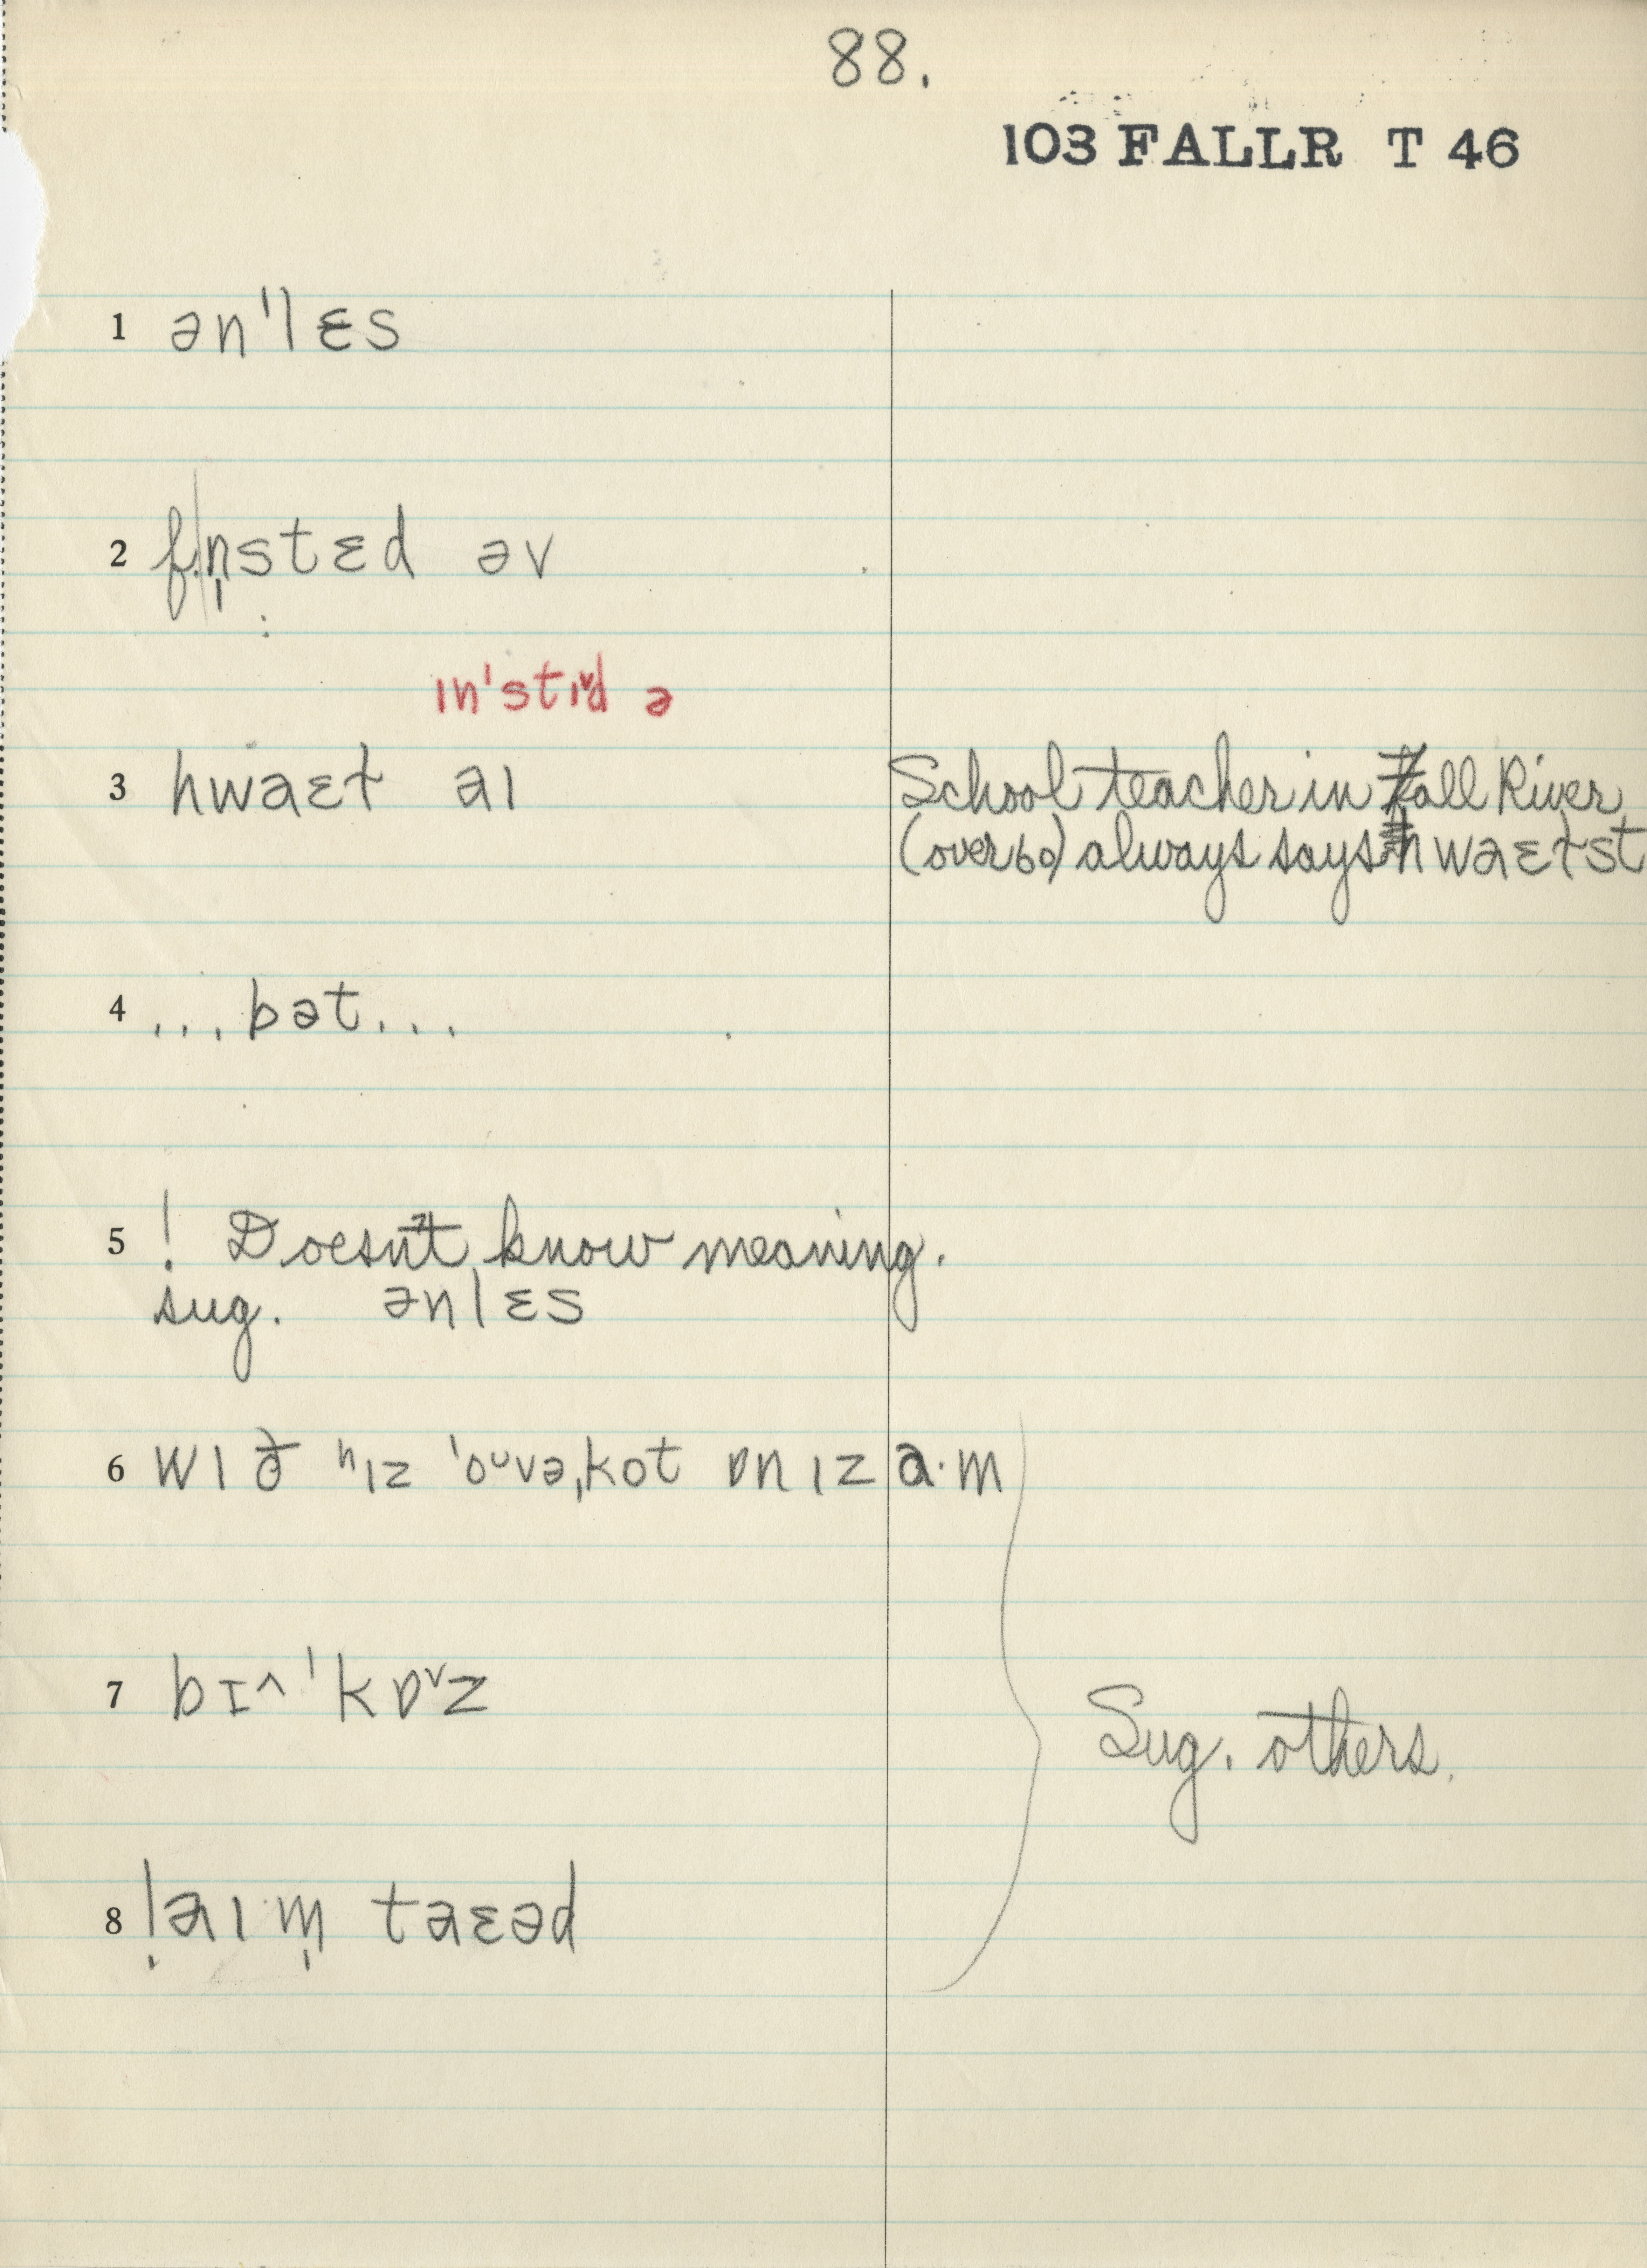 88.
103 FALLR T 46
1 ən'lɛs
2 f.n̩stɛd əv
ɪn'stɪ˅d ə
3 hwaɛt aɪ School teacher in Fall River
(over 60) always says hwaɛtst
4 ...bət...
5 ! Doesn't know meaning.
sug. ənlɛs
6 wɪð ʰɪz 'oᵘvə,kot ɒnɪz a·m
7 bɪ^'kɒ˅z
Sug. others.
8 !aɪm̩ taɛəd